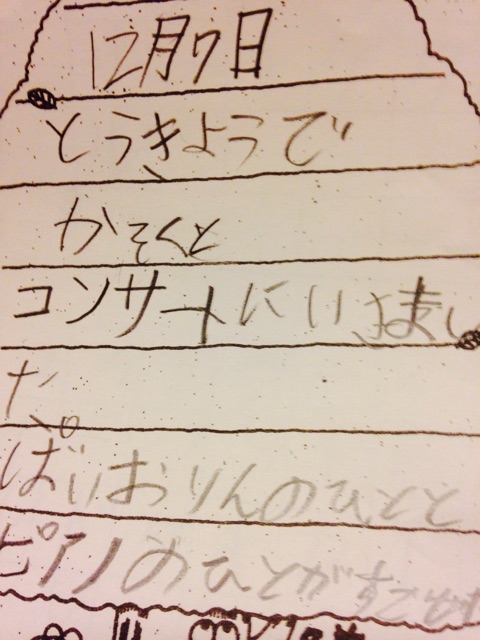 12月7日
とうきようで
かぞくと
コンサートにいきまし
た。
ばいおりんのひとと
ピアノのひとが